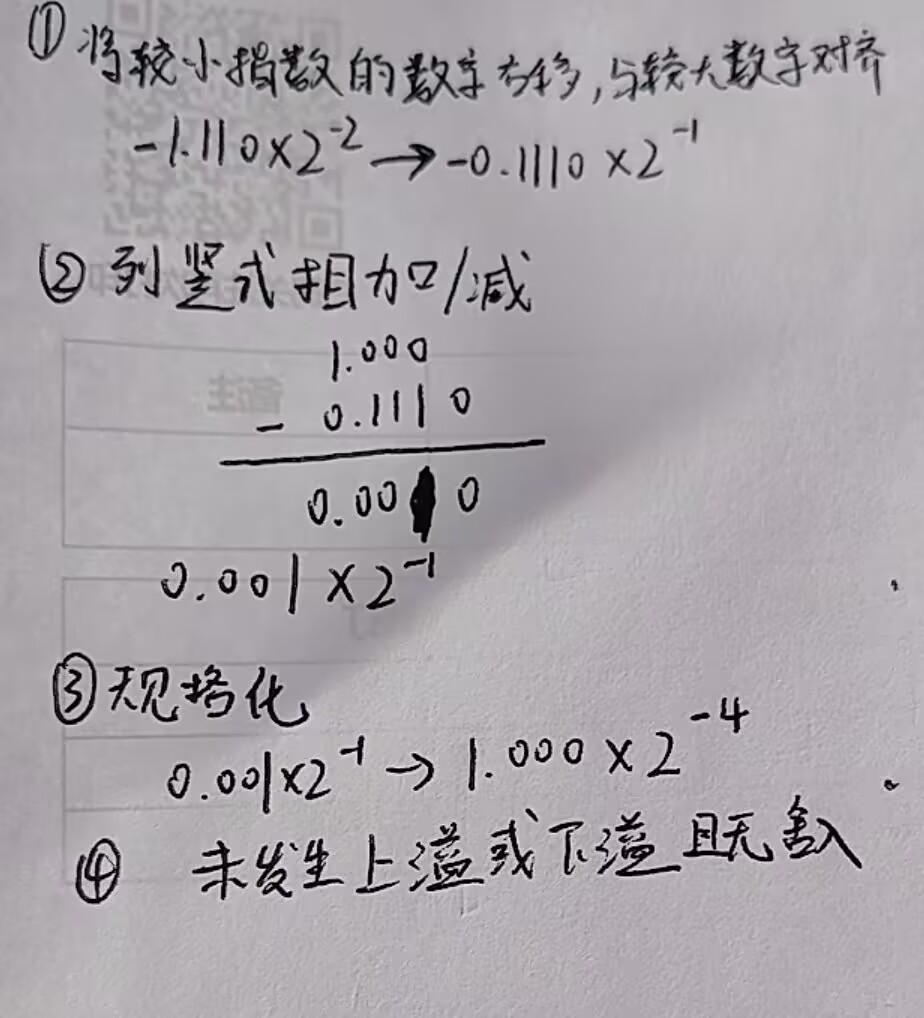 ① 将较小指数的数字右移,与较大数字对齐
-1.110×2⁻² → -0.1110×2⁻¹
② 列竖式相加/减
1.000
- 0.1110
0.0010
0.001×2⁻¹
③ 规格化
0.001×2⁻¹ → 1.000×2⁻⁴
④ 未发生上溢或下溢且无舍入
备注